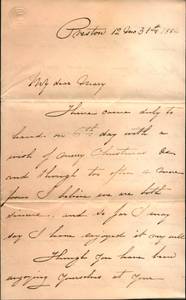 Preston 12 mo 31st 188
My dear Mary
Yours came duly to
hand on 5th day with a
wish of merry Christmas
and though
I believe we are both
and so far I may
say I have enjoyed it very well
Though you have been
enjoying yourselves at your